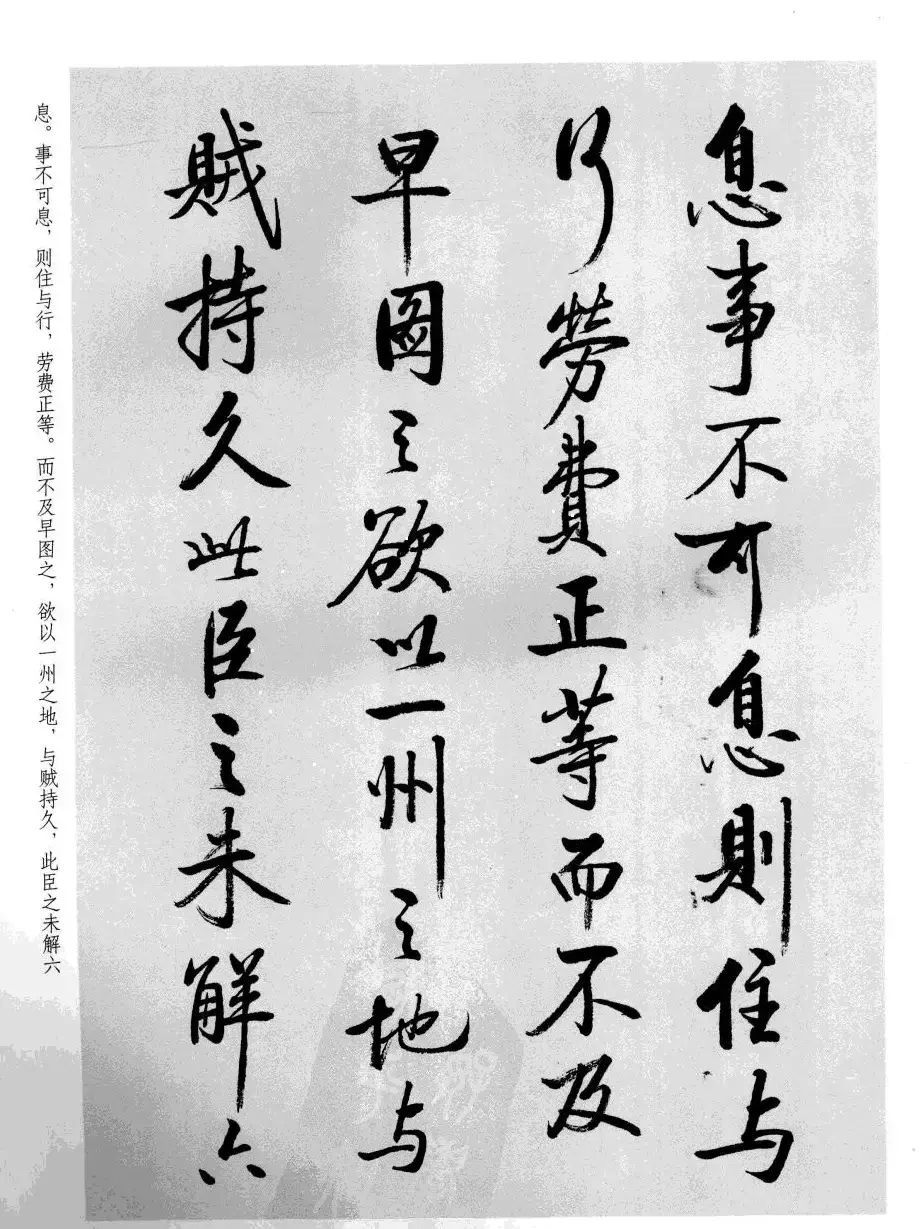 息事不可息則住与
行勞費正等而不及
早圖之欲以一州之地与
賊持久此臣之未解六
息。事不可息，则住与行，劳费正等。而不及早图之，欲以一州之地，与贼持久，此臣之未解六